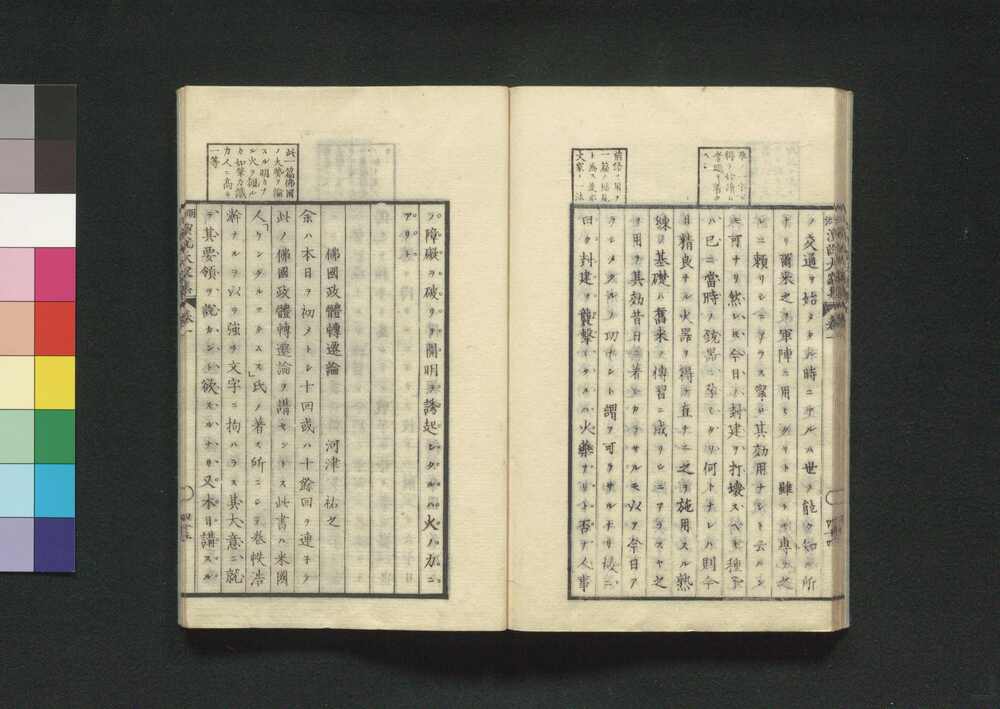 ノ交通ヲ始メタル時ニテルハ世ノ能ク知ル所
ナリ爾来之ヲ軍陣ニ用ヒタリト雖トモ専ラ之
ニ頼リシニアラス寧ロ其効用ナシト云ハンモ
可ナリ然レ𪜈今日ノ封建ヲ打壊スヘキ種子
ハ已ニ當時ノ銃器ニ孕レタリ何トナレハ則今
日精良ナル火器ヲ得テ直チニ之ヲ施用スル熟
練ノ基礎ハ舊来ノ傳習ニ成リシニアラスヤ之
ヲ用ヲ其効昔日ニ著シカラサルモ以テ今日ア
ラシメタルノ功ナシト謂フ可ラサルナリ故ニ
曰ク封建ヲ襲撃シタルハ火藥ナリト否ナ人事
前段ノ用ヲ
一篇ノ結尾
ト為ス是亦
大家ノ一法
ノ障礙ヲ破リテ開明ヲ誘起シタルハ火ノ力ニ
アリト
佛國政體轉遷論 河津祐之
余ハ本日ヲ初メトシ十回或ハ十餘回ヲ連子テ
此ノ佛國政體轉遷論ヲ講セントス此書ハ米國
人「ケンダルマクス」氏ノ著ス所ニシテ巻帙浩
瀚ナルヲ以テ強テ文字ニ拘ハラス其大意ニ就
テ其要領ヲ説カント欲スルナリ又本日講スル
此一篇佛國
ノ大勢ヲ論
スル明カナ
ル火ヲ覩ル
カ如筆力識
力人ニ高キ
一等